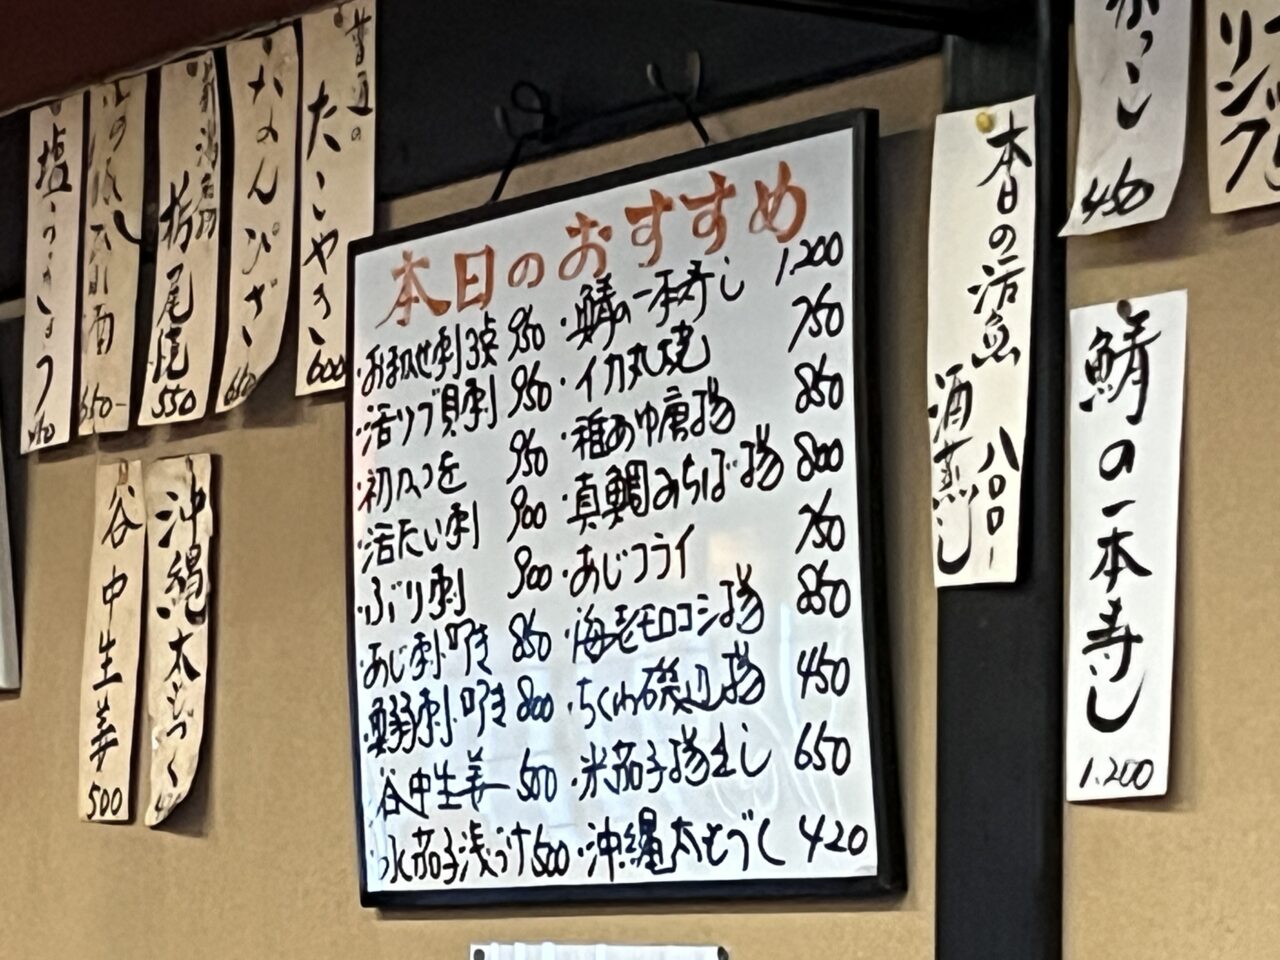 普通の
たこやき
600
なんぴざ
栃尾焼
550
650-
塩
谷中生姜
500
沖縄太もづく
本日のおすすめ
・おまかせ刺3点 950
・活ツブ貝刺 950
・初かつを 950
・活たい刺 900
・ぶり刺 900
・あじ刺・叩き 850
刺・叩き 800
・谷中生姜 500
・水茄子浅づけ 500
・鯖の一本寿し 1.200
・イカ丸焼 750
・稚あゆ唐揚 850
・真鯛みちば揚 800
・あじフライ 750
・海老モロコシ揚 850
・ちくわ磯辺揚 450
・米茄子揚出し 650
・沖縄太もづく 420
本日の活魚
酒蒸し
八〇〇-
っこ
450
リング
鯖の一本寿し
1.200